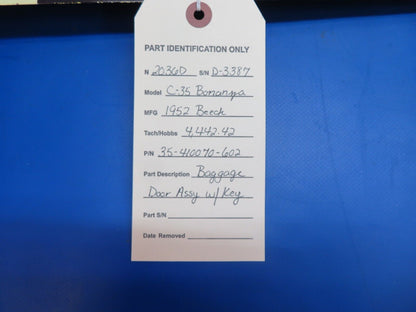 PART IDENTIFICATION ONLY
N 2036D S/N D-3387
Model C-35 Bonanza
MFG 1952 Beech
Tach/Hobbs 4,442.42
P/N 35-410070-602
Part Description Baggage
Door Assy w/ Key
Part S/N
Date Removed